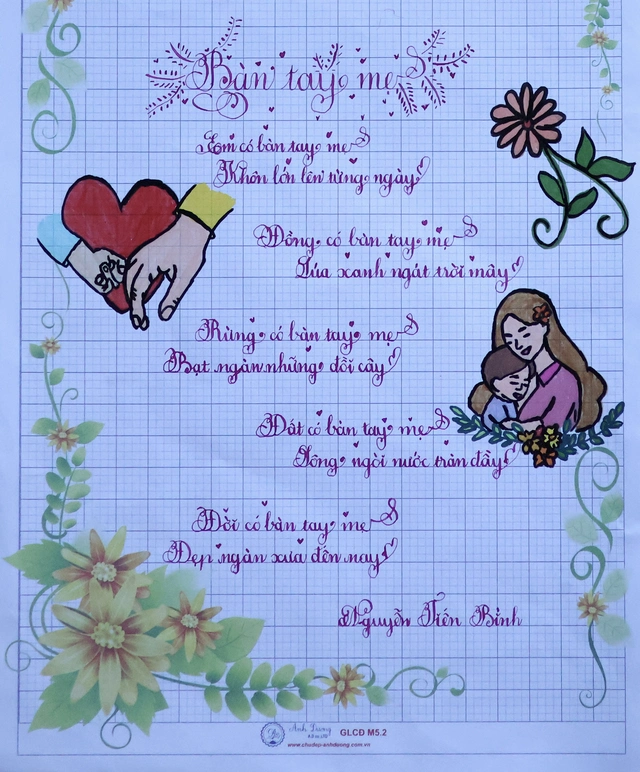 Bàn tay mẹ
Em có bàn tay mẹ
Khôn lớn lên từng ngày
Đồng có bàn tay mẹ
Lúa xanh ngát trời mây
Rừng có bàn tay mẹ
Bạt ngàn những đồi cây
Đất có bàn tay mẹ
Sông ngòi nước tràn đầy
Đời có bàn tay mẹ
Đẹp ngàn xưa đến nay
Nguyễn Tiến Bình
Ánh Dương
GLCĐ M5.2
www.chudep-anhduong.com.vn